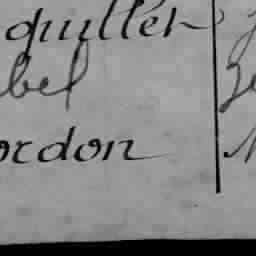 quillet
bel
ordon